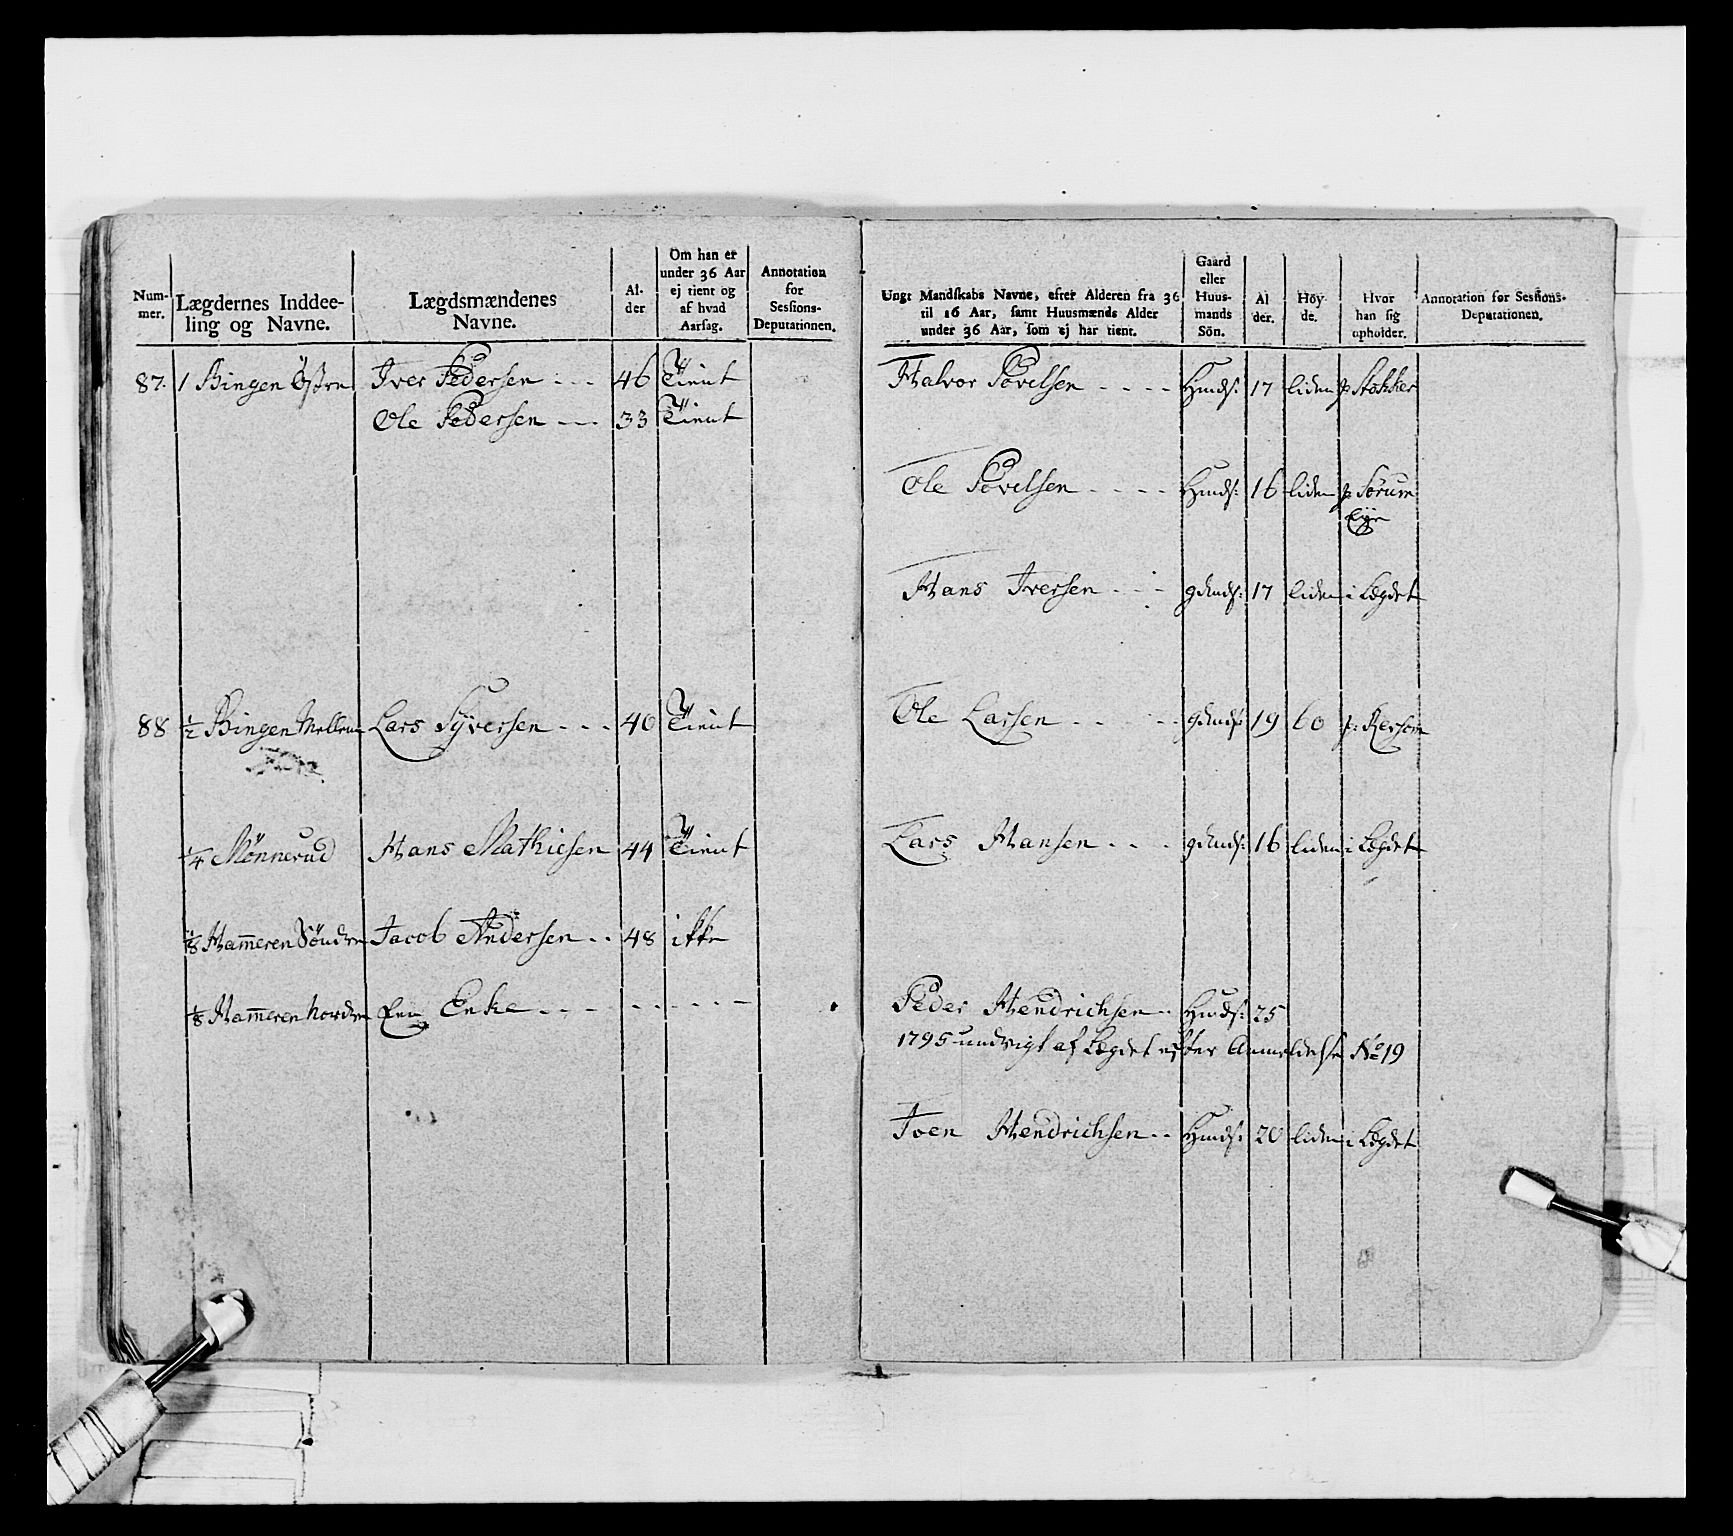 Num-
mer.
Lægdernes Inddee-
ling og Navne.
Lægdsmændenes
Navne.
Al-
der
Om han er
under 36 Aar
ej tient og
af hvad
Aarsag.
Annotation
for
Sessions-
Deputationen.
87. 1 Bingen Östre Iver Pedersen - - - 46 Tient
Ole Pedersen - - - 33 Tient
88 ½ Bingen Mellem Lars Syversen - - - 40 Tient
¼ Mønnerud Hans Mathiesen 44 Tient
⅛ Ham̄eren Söndre Jacob Andersen - - 48 ikke
⅛ Ham̄eren Nordre Een Enke - - - - - - - - -
Ungt Mandskabs Navne, efter Alderen fra 36
til 16 Aar, samt Huusmænds Alder
under 36 Aar, som ej har tient.
Gaard
eller
Huus-
mands
Sön.
Al
der.
Höy
de.
Hvor
han sig
opholder.
Annotation for Sessions-
Deputationen.
Halvor Povelsen - - - - Hmds: 17 liden p: Stokker
Ole Povelsen - - - - Hmds: 16 liden p: Sørum
Eye
Hans Iversen - - - gdmds: 17 liden i Lægdet
Ole Larsen - - - - - gdmds: 19 60 p:
Lars Hansen - - - gdmds: 16 liden i Lægdet
Peder Hendrichsen - - Hmds: 25
1795 undvigt af Lægdet efter Anmeldelse No 19
Iven Hendrichsen - - Hmds: 20 liden i Lægdet